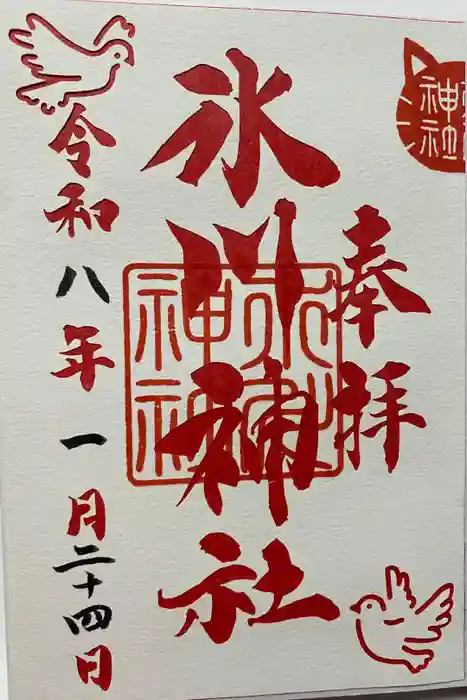 奉拝
氷川神社
令和八年一月二十四日
氷川
神社
神社